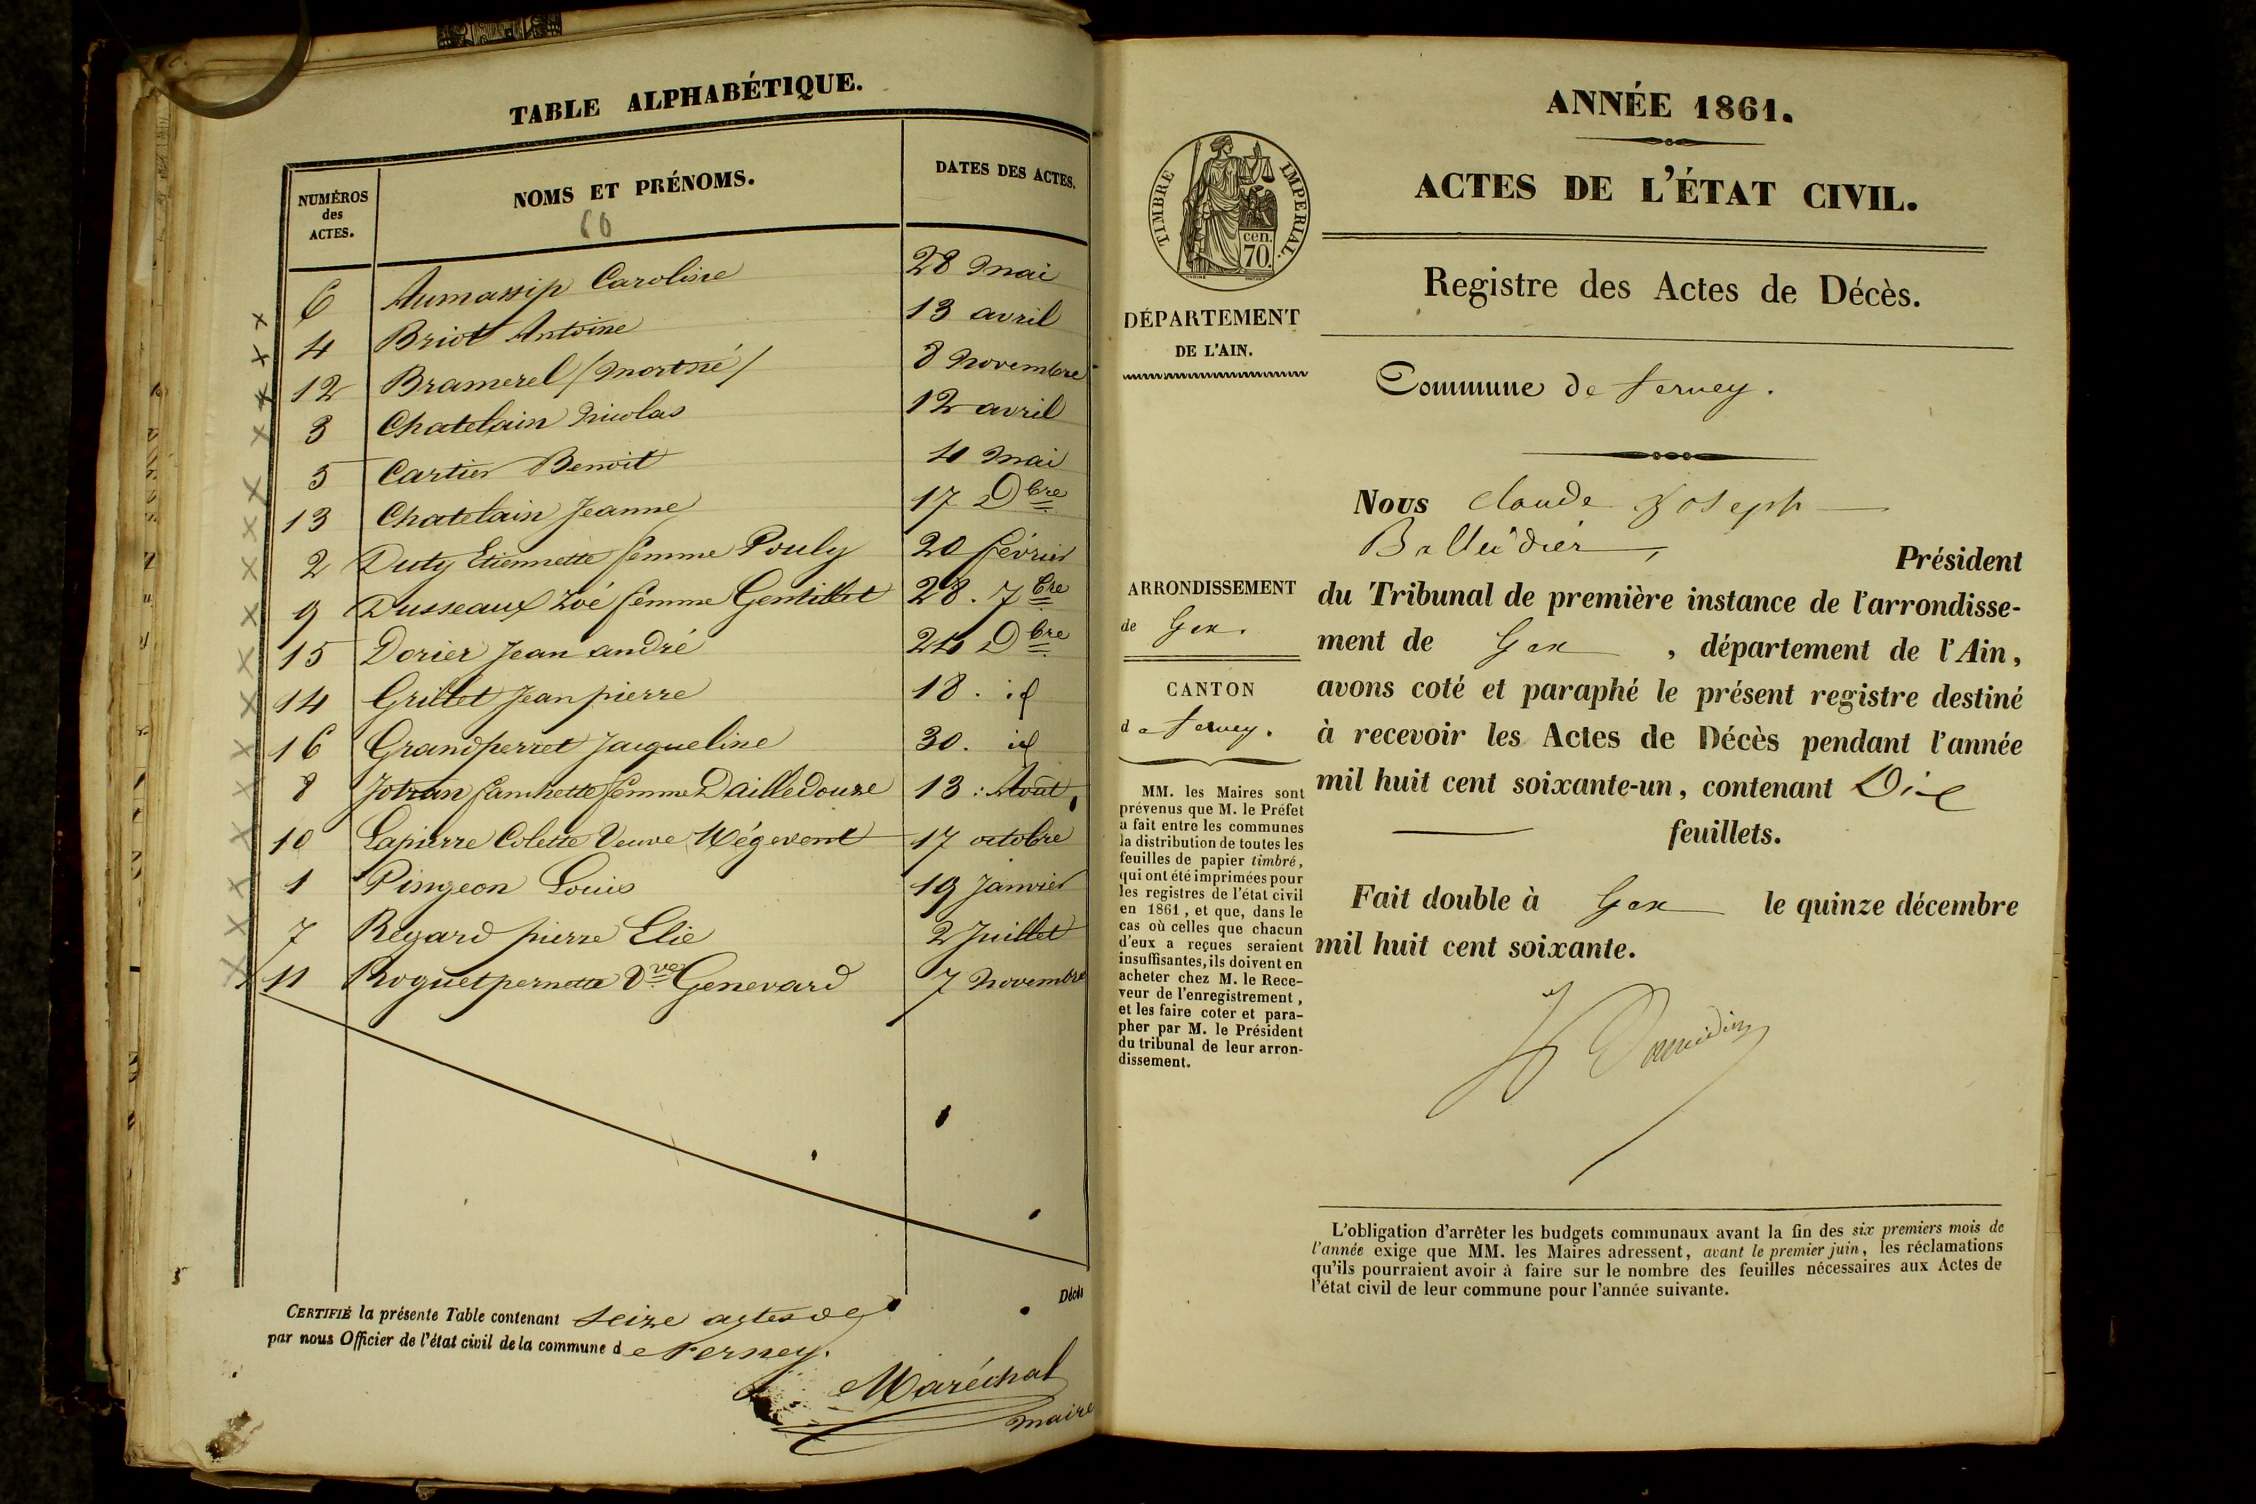 TABLE ALPHABÉTIQUE.
NUMÉROS
des
ACTES.
NOMS ET PRÉNOMS.
DATES DES ACTES.
60
6 Aumassip Caroline 28 mai
4 Briot Antoine 13 avril
12 Bramerel / mort né / 8 novembre
3 Chatelain Nicolas 12 avril
5 Cartier Benoit 4 mai
13 Chatelain Jeanne 17 Dbre
2 Duty Etiennette femme Pouly 20 février
9 Dusseaux Zoé femme Gentillet 28. 7bre
15 Dorier Jean andré 24 Dbre
14 Grillet Jean pierre 18. id
16 Grandperret Jacqueline 30. id
8 fanchette femme Dailledouze 13: Août
10 Lapierre Colette Veuve Mégevent 17 octobre
1 Pingeon Louis 19 Janvier
7 Regard pierre Elie 2 Juillet
11 Roguet pernette Vve Genevard 7 novembre
Décès
CERTIFIÉ la présente Table contenant seize actes de
par nous Officier de l'état civil de la commune de Ferney.
Maréchal
maire
ANNÉE 1861.
ACTES DE L'ÉTAT CIVIL.
TIMBRE IMPERIAL.
cen.
70.
Registre des Actes de Décès.
DÉPARTEMENT
DE L'AIN.
Commune de Ferney.
Nous Claude Joseph
Président
du Tribunal de première instance de l'arrondisse-
ment de Gex, département de l'Ain,
avons coté et paraphé le présent registre destiné
à recevoir les Actes de Décès pendant l'année
mil huit cent soixante-un, contenant Dix
feuillets.
Fait double à Gex le quinze décembre
mil huit cent soixante.
ARRONDISSEMENT
de Gex.
CANTON
de Ferney.
MM. les Maires sont
prévenus que M. le Préfet
a fait entre les communes
la distribution de toutes les
feuilles de papier timbré,
qui ont été imprimées pour
les registres de l'état civil
en 1861, et que, dans le
cas où celles que chacun
d'eux a reçues seraient
insuffisantes, ils doivent en
acheter chez M. le Rece-
veur de l'enregistrement,
et les faire coter et para-
pher par M. le Président
du tribunal de leur arron-
dissement.
L'obligation d'arrêter les budgets communaux avant la fin des six premiers mois de
l'année exige que MM. les Maires adressent, avant le premier juin, les réclamations
qu'ils pourraient avoir à faire sur le nombre des feuilles nécessaires aux Actes de
l'état civil de leur commune pour l'année suivante.